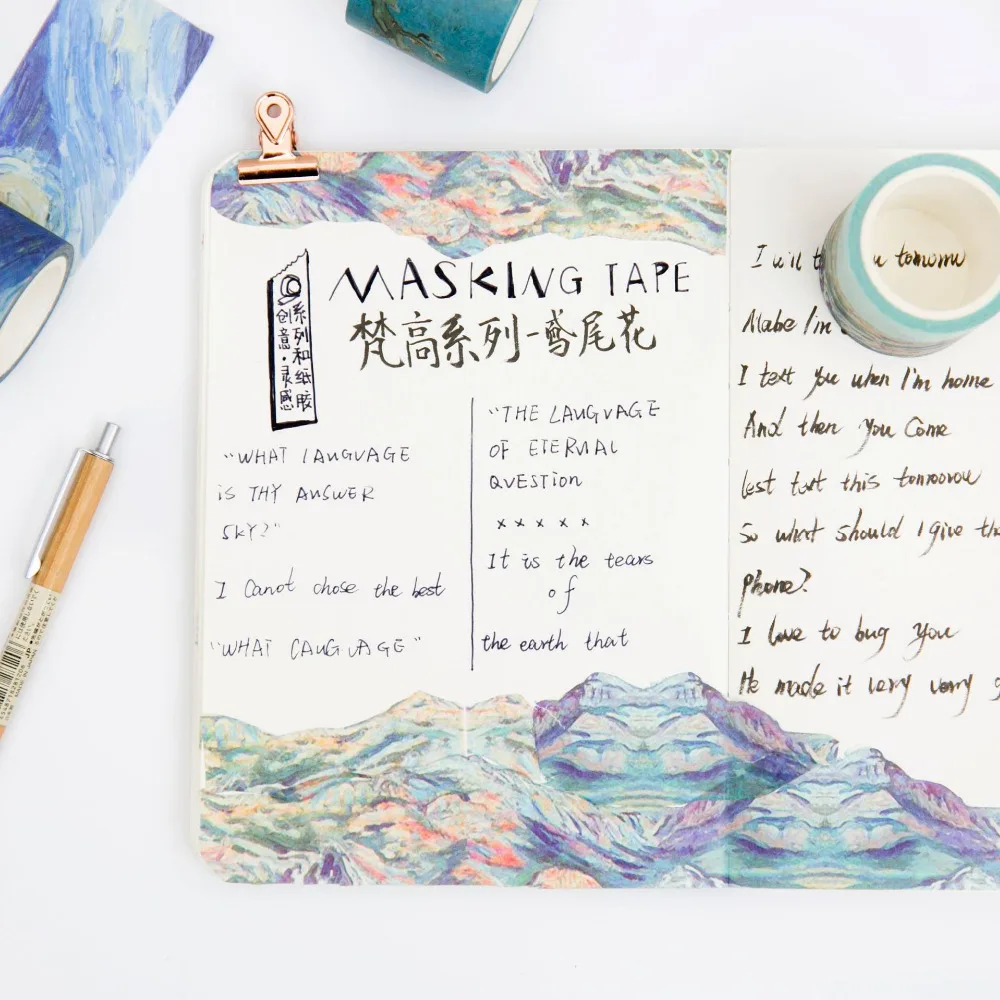 MASKING TAPE
梵高系列-鸢尾花
系列和纸胶
创意·灵感
"WHAT LANGUAGE
IS THY ANSWER
SKY?"
I Canot chose the best
"WHAT CAUGUAGE"
"THE LANGUAGE
OF ETERNAL
QUESTION
x x x x x
It is the tears
of
the earth that
I will u tomorrw
Mabe I'm
I text you when I'm home
And then you Come
lest text this tomoorow
So what should I give the
phone?
I love to bug you
He made it very very